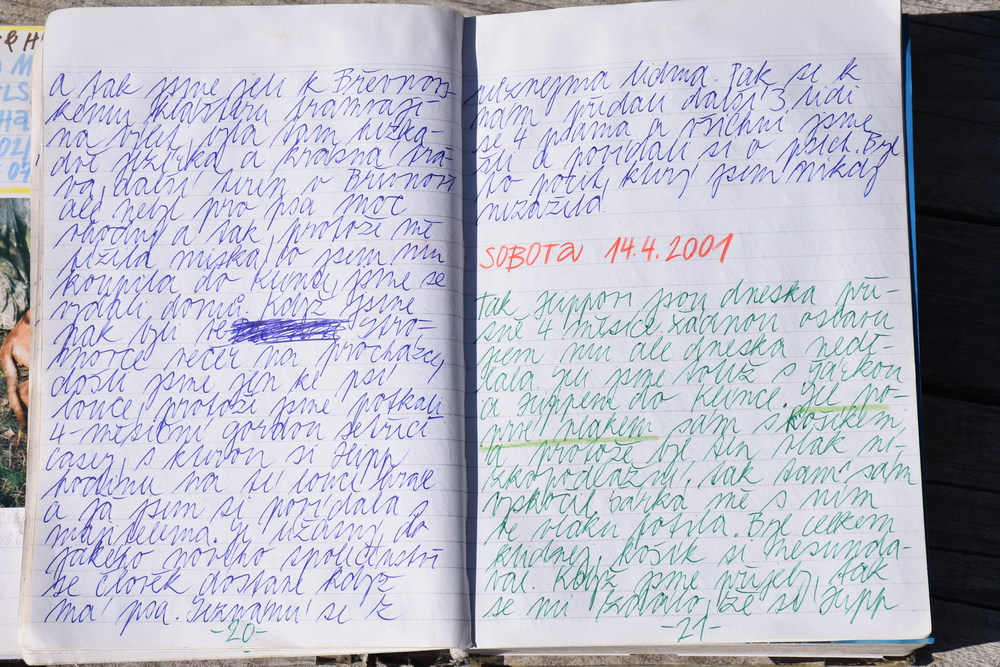 a tak jsme jeli k Břevnovs-
kému klášteru tramvají
na výlet, byla tam
a krásná trá-
va, další v Břevnově
ale nebyl pro psa moc
vhodný a tak, protože mě
tížila miska, co jsem mu
koupila do klece, jsme se
vydali domů. Když jsme
pak byli ve Stro-
movce večer na procházce,
došli jsme jen ke psí
louce, protože jsme potkali
4-měsíční gordon setřici
Casey, s kterou si Hipp
hodinu na té louce hrál
a já jsem si povídala s
manželema. Je úžasný, do
jakého novýho společenství
se člověk dostane když
má psa. Seznámí se z
-20-
různejma lidma. Pak se k
nám přidali další 3 lidi
se 4 psama a všichni jsme
šli a povídali si o psech. Byl
to pocit, který jsem nikdy
nezažila.
SOBOTA 14.4.2001
Tak Hippovi jsou dneska pře-
sně 4 měsíce. Žádnou oslavu
jsem mu ale dneska nedě-
lala. Jeli jsme totiž s Járkou
a Hippem do Klince. Jel po-
prvé vlakem sám s košíkem,
a protože byl ten vlak ní-
zkopodlažný, tak tam sám
vyskočil. Járka mě s ním
ve vlaku fotila. Byl celkem
klidnej, košík si nesundá-
val. Když jsme přijeli, tak
se mi zdálo, že se Hipp
-21-